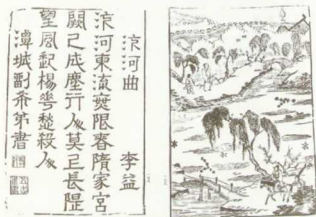 汴河曲
李益
汴河東流無限春隋家宮
闕已成塵行人莫上長隄
望風起楊花愁殺人